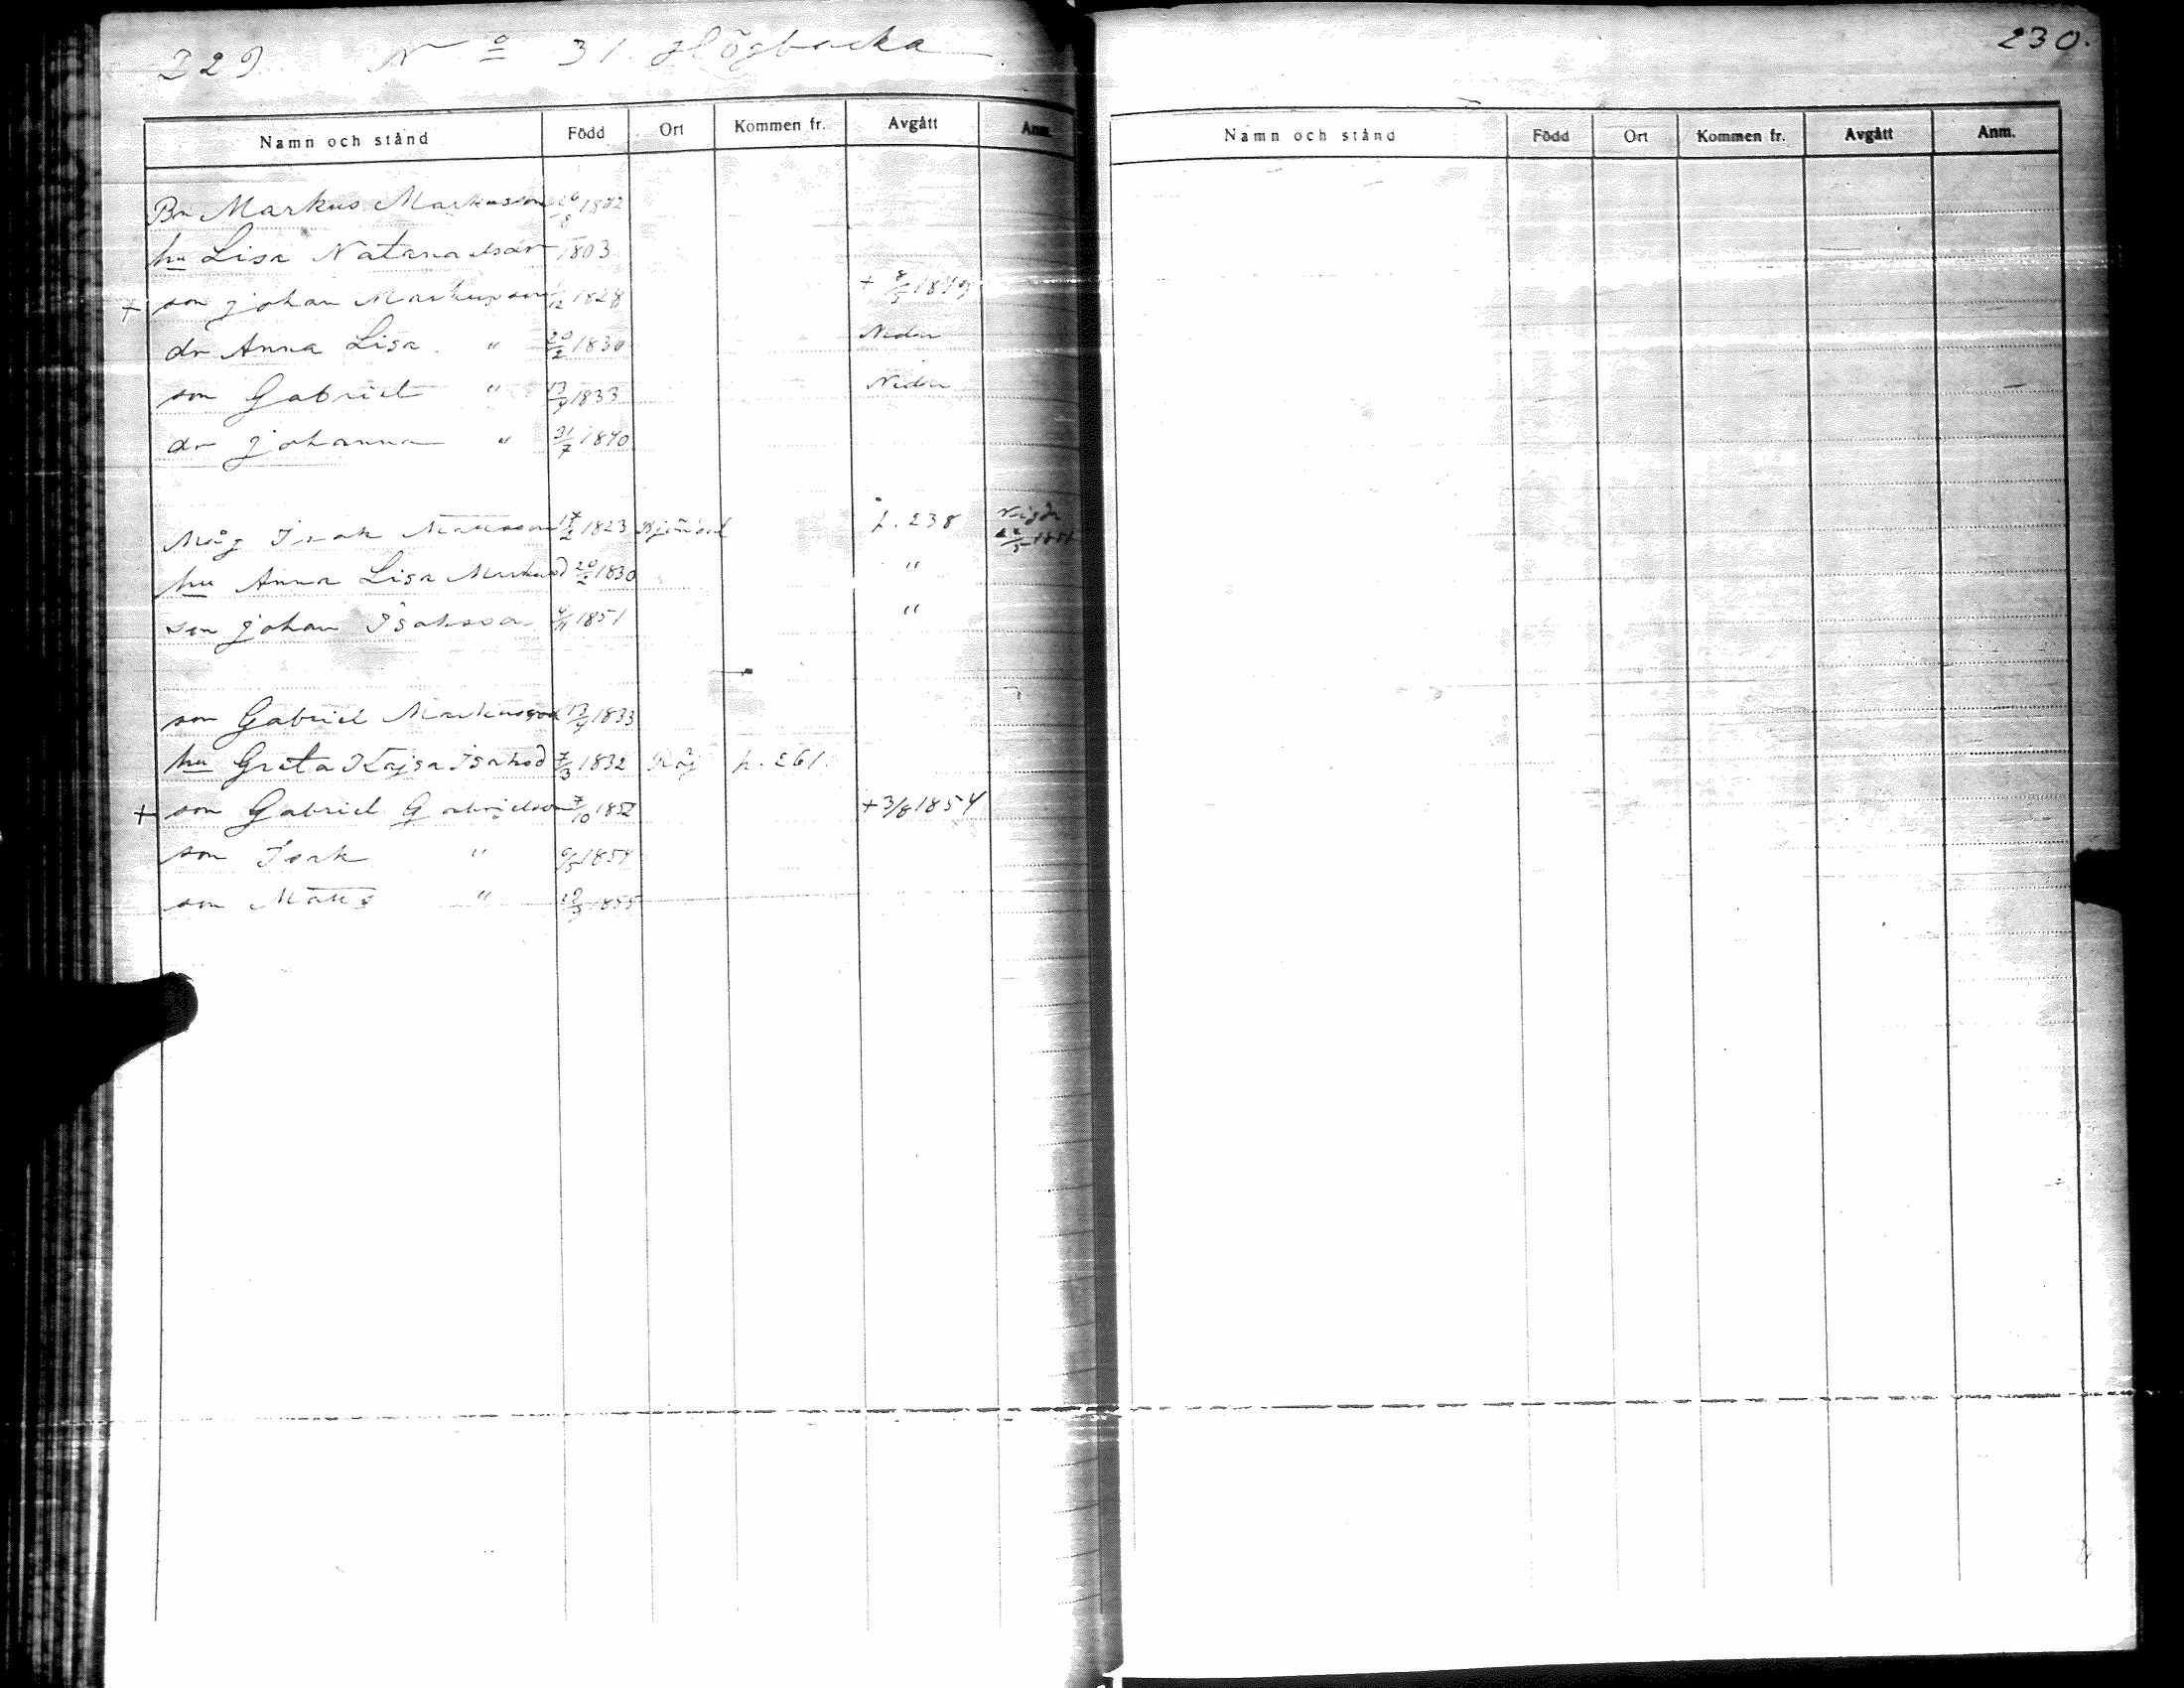 229 No 31. Högbacka.
Namn och stånd Född Ort Kommen fr. Avgått Anm.
Bn Markus Markusson 26/8 1802
hu Lisa Natanaelsdr 1803
+ son Johan Markusson /12 1828 + 8/5 1849
dr Anna Lisa " 20/2 1830 Nedan
son Gabriel " 13/9 1833 Nedan
dr Johanna " 31/7 1840
Måg Isak Mattsson 17/2 1823 p. 238 Vigda
hu Anna Lisa Markusd 20/2 1830 "
son Johan Isaksson 4/11 1851 "
son Gabriel Markusson 13/9 1833
hu Greta Kajsa Isaksd 7/3 1832 p. 261.
+ son Gabriel Gabrielsson 7/10 1852 + 3/8 1854
son Isak " 6/5 1854
son Matts " 1855
230.
Namn och stånd Född Ort Kommen fr. Avgått Anm.